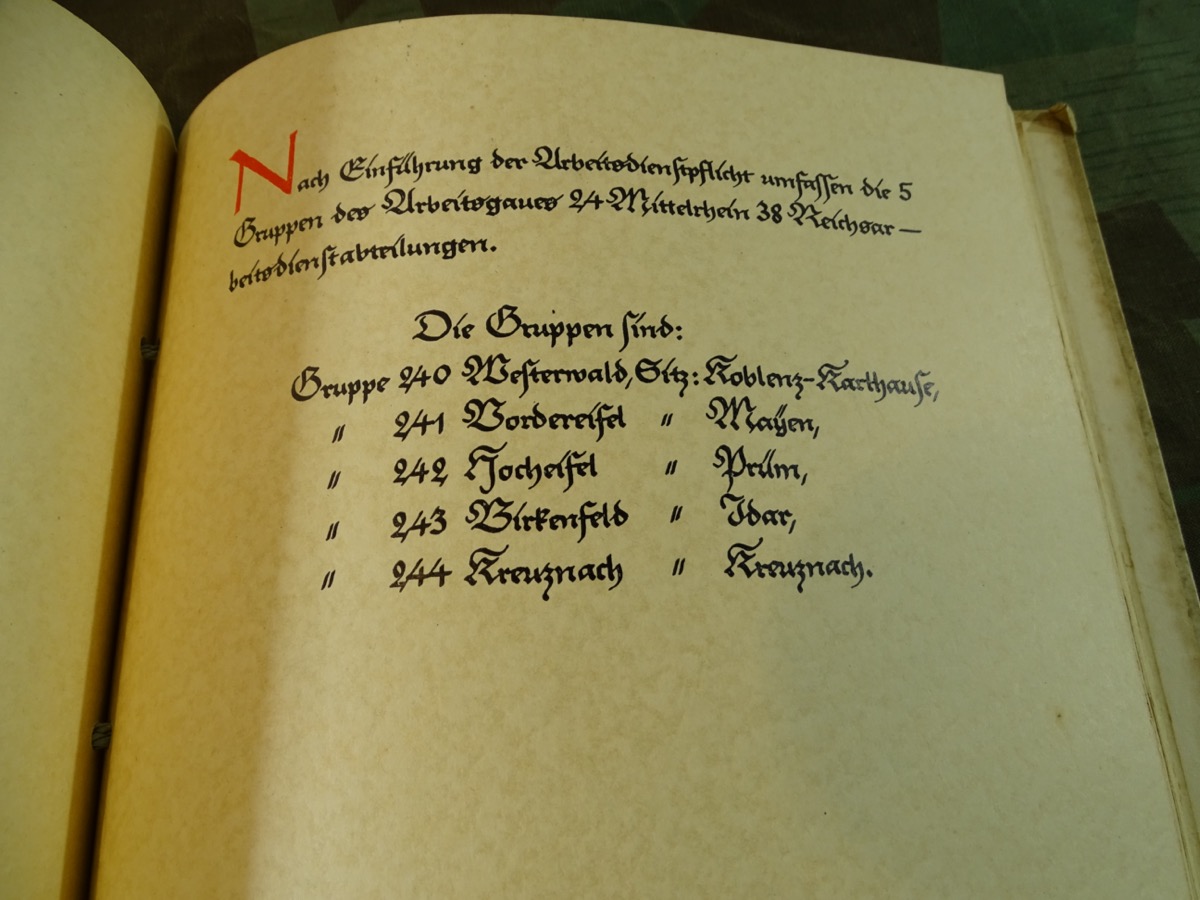 Nach Einführung der Arbeitsdienstpflicht umfassen die 5
Gruppen des Arbeitsgaues 24 Mittelrhein 38 Reichsar—
beitsdienstabteilungen.
Die Gruppen sind:
Gruppe 240 Westerwald, Sitz: Koblenz-Karthause,
" 241 Vordereifel " Mayen,
" 242 Hocheifel " Prüm,
" 243 Birkenfeld " Idar,
" 244 Kreuznach " Kreuznach.